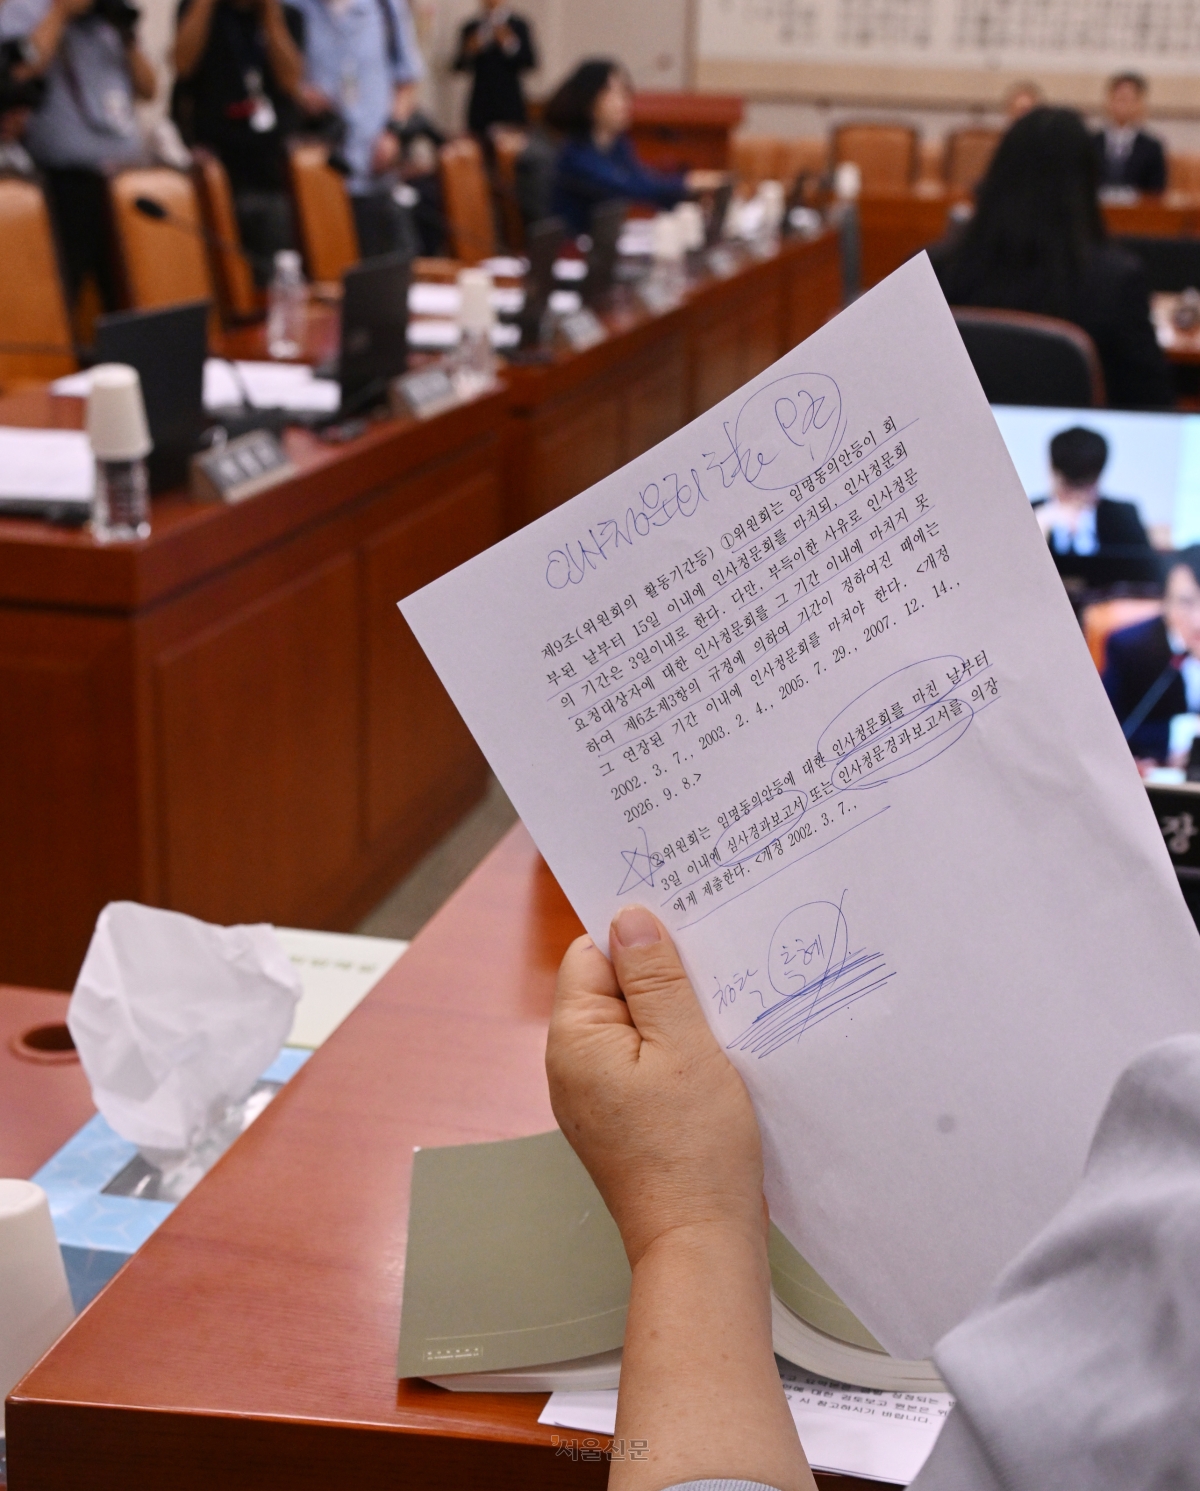 제9조(위원회의 활동기간등) ①위원회는 임명동의안등이 회
부된 날부터 15일 이내에 인사청문회를 마치되, 인사청문회
의 기간은 3일이내로 한다. 다만, 부득이한 사유로 인사청문
요청대상자에 대한 인사청문회를 그 기간 이내에 마치지 못
하여 제6조제3항의 규정에 의하여 기간이 정하여진 때에는
그 연장된 기간 이내에 인사청문회를 마쳐야 한다. <개정
2002. 3. 7., 2003. 2. 4., 2005. 7. 29., 2007. 12. 14.,
2026. 9. 8.>
②위원회는 임명동의안등에 대한 인사청문회를 마친 날부터
3일 이내에 심사경과보고서 또는 인사청문경과보고서를 의장
에게 제출한다. <개정 2002. 3. 7.,
청탁 특혜
강
시 참고하시기 바랍니다.
서울신문